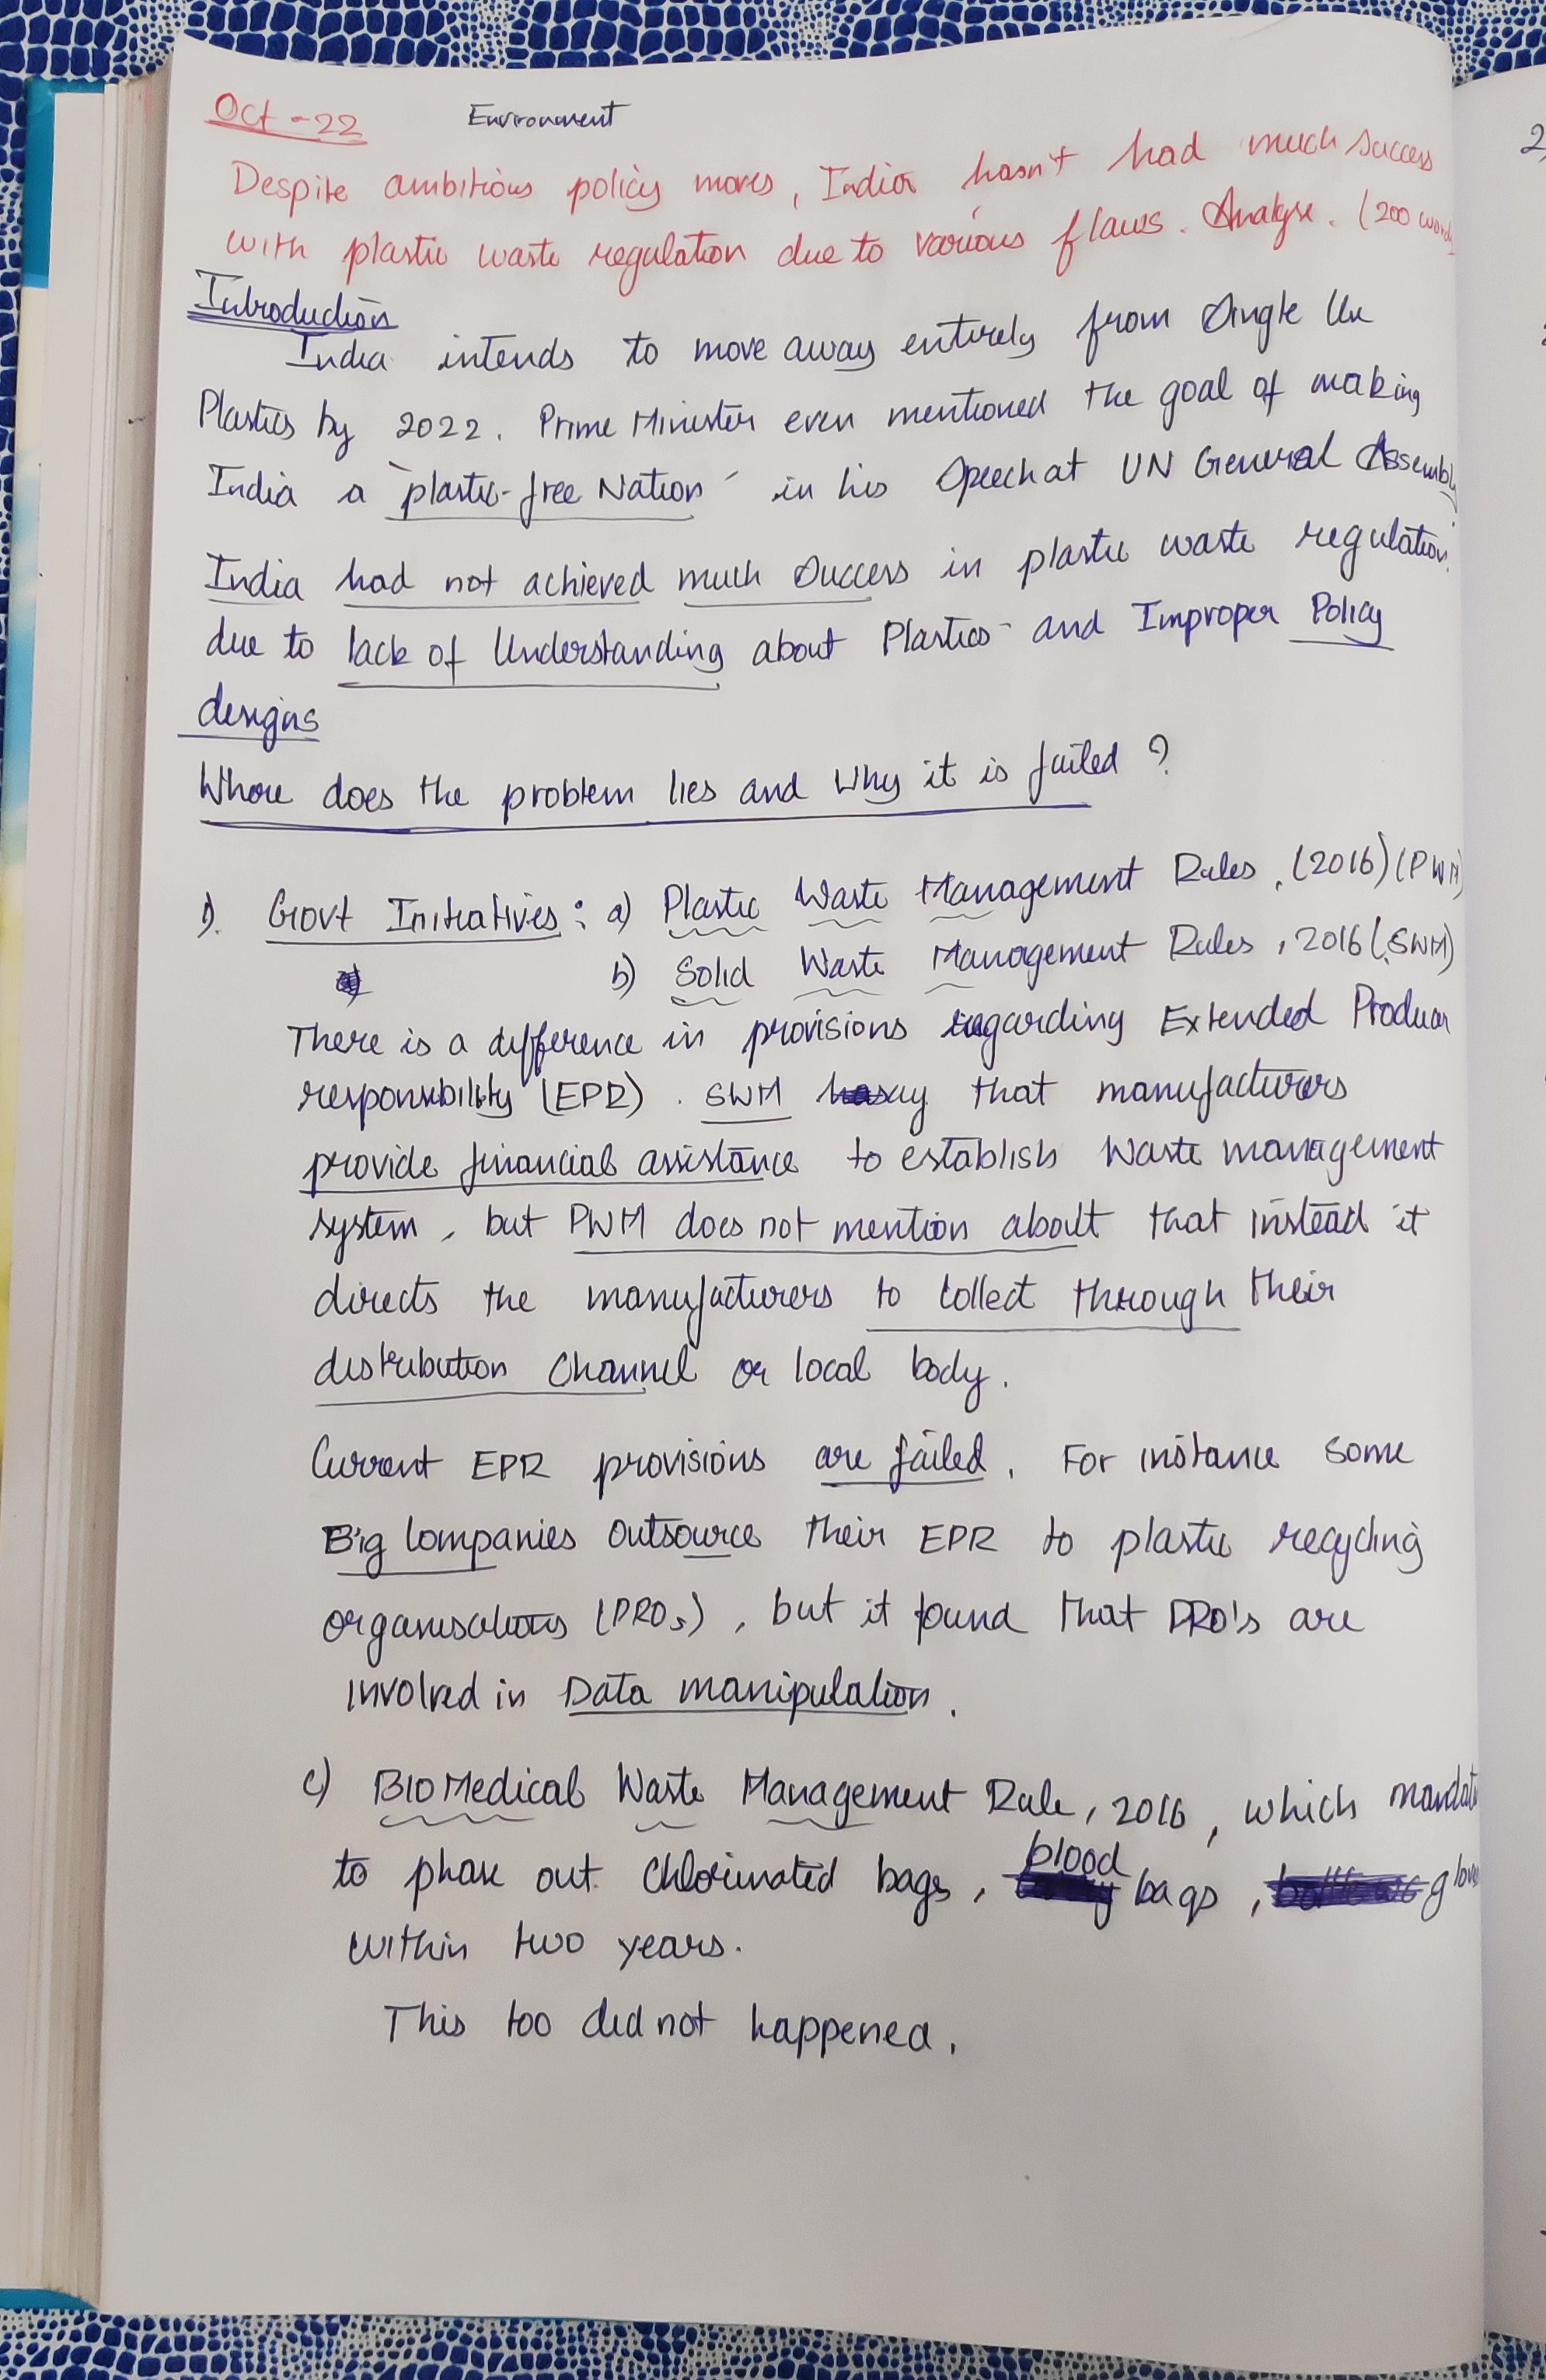 Oct - 22 Environment
Despite ambitious policy moves, India hasn't had much success
with plastic waste regulation due to various flaws. Analyse. (200 words
Introduction
India intends to move away entirely from Single Use
Plastics by 2022. Prime Minister even mentioned the goal of making
India a `plastic-free Nation´ in his Speech at UN General Assembly
India had not achieved much Success in plastic waste regulation
due to lack of Understanding about Plastics and Improper Policy
designs
Where does the problem lies and Why it is failed ?
1). Govt Initiatives : a) Plastic Waste Management Rules, (2016) (PWM)
b) Solid Waste Management Rules, 2016 (SWM)
There is a difference in provisions regarding Extended Producer
responsibility (EPR). SWM say that manufacturers
provide financial assistance to establish Waste management
system, but PWM does not mention about that instead it
directs the manufacturers to Collect through their
distribution Channel or local body.
Current EPR provisions are failed. For instance some
Big Companies outsource their EPR to plastic recycling
organisations (PROs), but it found that PRO's are
involved in Data manipulation.
c) BioMedical Waste Management Rule, 2016, which mandate
to phase out Chlorinated bags, blood bags, gloves
within two years.
This too did not happened.
2)